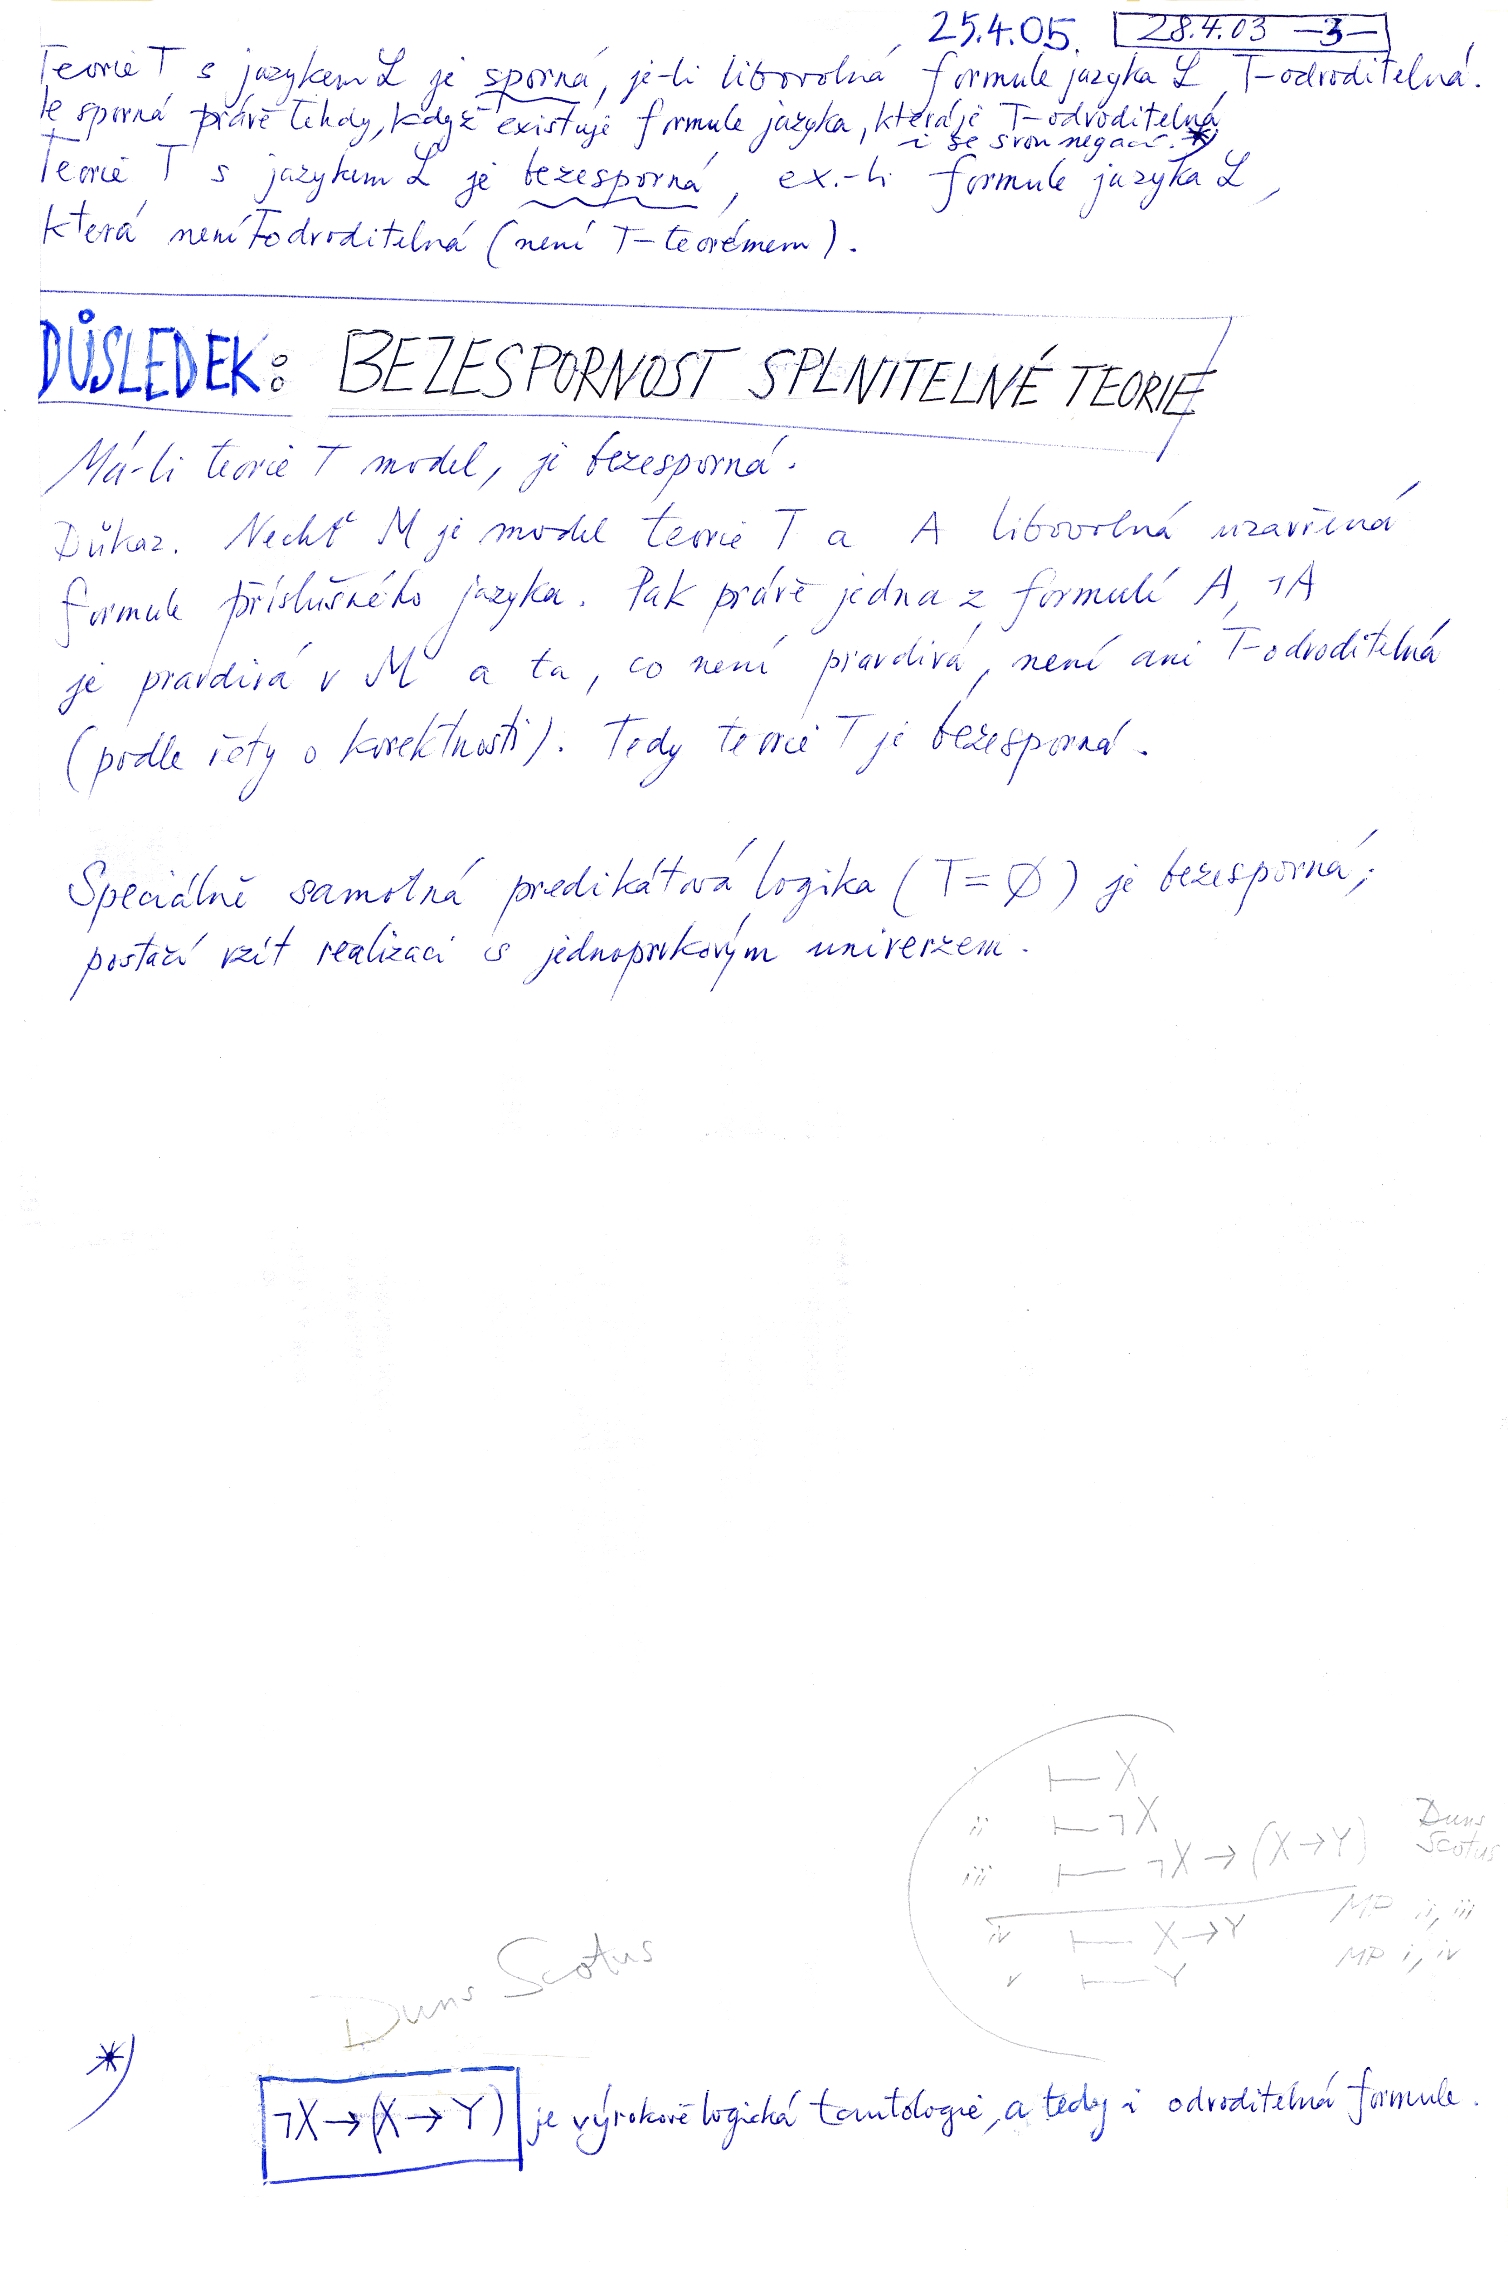 25.4.05. 28.4.03 -3-
Teorie T s jazykem L je sporná, je-li libovolná formule jazyka L T-odvoditelná.
Je sporná právě tehdy, když existuje formule jazyka, která je T-odvoditelná
i se svou negací. *)
Teorie T s jazykem L je bezesporná, ex.-li formule jazyka L,
která není T-odvoditelná (není T-teorémem).
DŮSLEDEK: BEZESPORNOST SPLNITELNÉ TEORIE
Má-li teorie T model, je bezesporná.
Důkaz. Nechť M je model teorie T a A libovolná uzavřená
formule příslušného jazyka. Pak právě jedna z formulí A, ¬A
je pravdivá v M a ta, co není pravdivá, není ani T-odvoditelná
(podle věty o korektnosti). Tedy teorie T je bezesporná.
Speciálně samotná predikátová logika (T = ∅) je bezesporná;
postačí vzít realizaci s jednoprvkovým univerzem.
i ⊢ X
ii ⊢ ¬X
iii ⊢ ¬X → (X → Y) Duns Scotus
iv ⊢ X → Y MP ii, iii
v ⊢ Y MP i, iv
Duns Scotus
*)
¬X → (X → Y) je výrokově logická tautologie, a tedy i odvoditelná formule.